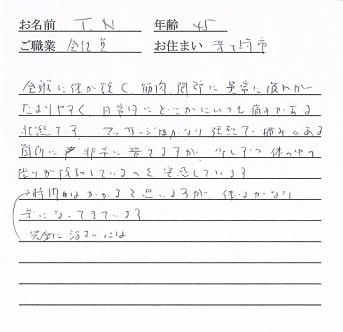 お名前 T.N 年齢 45
ご職業 会社員 お住まい 市
全般に体が硬く、筋肉、関節に異常に疲れが
たまりやすく 日常的にどこかにいつも痛みがある
状態です。マッサージはかなり強烈で痛みのある
箇所に 非常に 効きますが、少しずつ体の中の
張りが緩和しているのを実感しています
時間はかかると思いますが 体はかなり
楽になってきています
完全に治すには